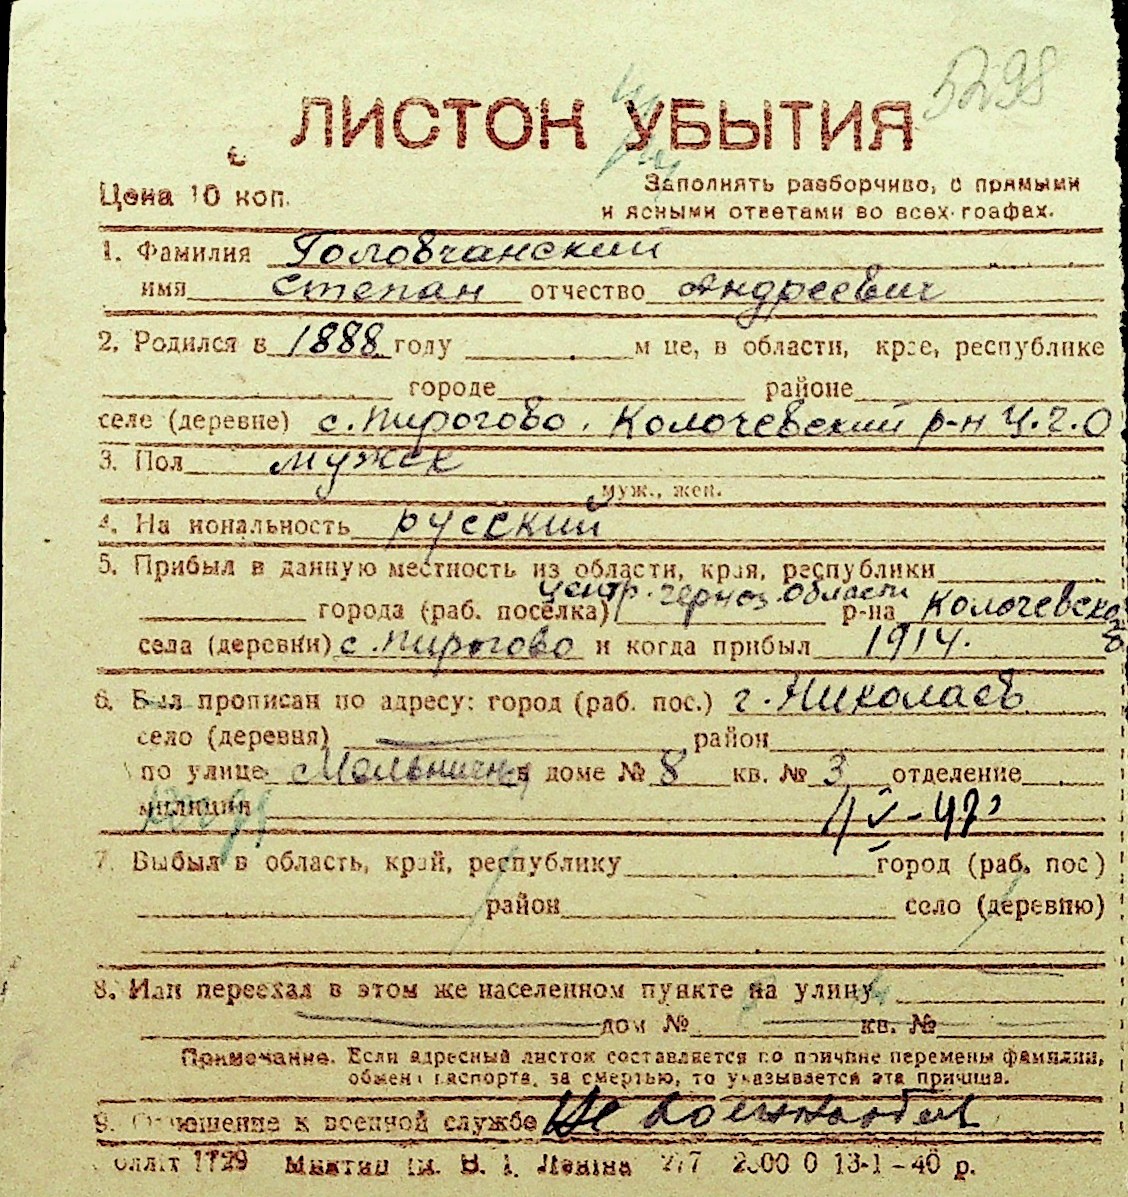 5298
ЛИСТОК УБЫТИЯ
Цена 10 коп.
Заполнять разборчиво, с прямыми
и ясными ответами во всех графах.
1. Фамилия Головчанский
имя Степан отчество Андреевич
2. Родился в 1888 году м це, в области, крае, республике
городе районе
селе (деревне) с. Пирогово. Колочевский р-н Ц.Ч.О
3. Пол мужск
муж., жен.
4. На иональность русский
5. Прибыл в данную местность из области, края, республики
центр. черноз. области
города (раб. поселка) р-на Колочевского
села (деревни) с. Пирогово и когда прибыл 1914.
6. Был прописан по адресу: город (раб. пос.) г. Николаев
село (деревня) район
по улице Мельничн в доме № 8 кв. № 3 отделение
милиции
7. Выбыл в область, край, республику город (раб. пос)
район село (деревню)
8. Или переехал в этом же населенном пункте на улицу
дом № кв. №
Примечание. Если адресный листок составляется по причине перемены фамилии,
обмена паспорта, за смертью, то указывается эта причина.
9. Отношение к военной службе Не военнообяз
1729 ім. В. І. Леніна 13-1-40 р.